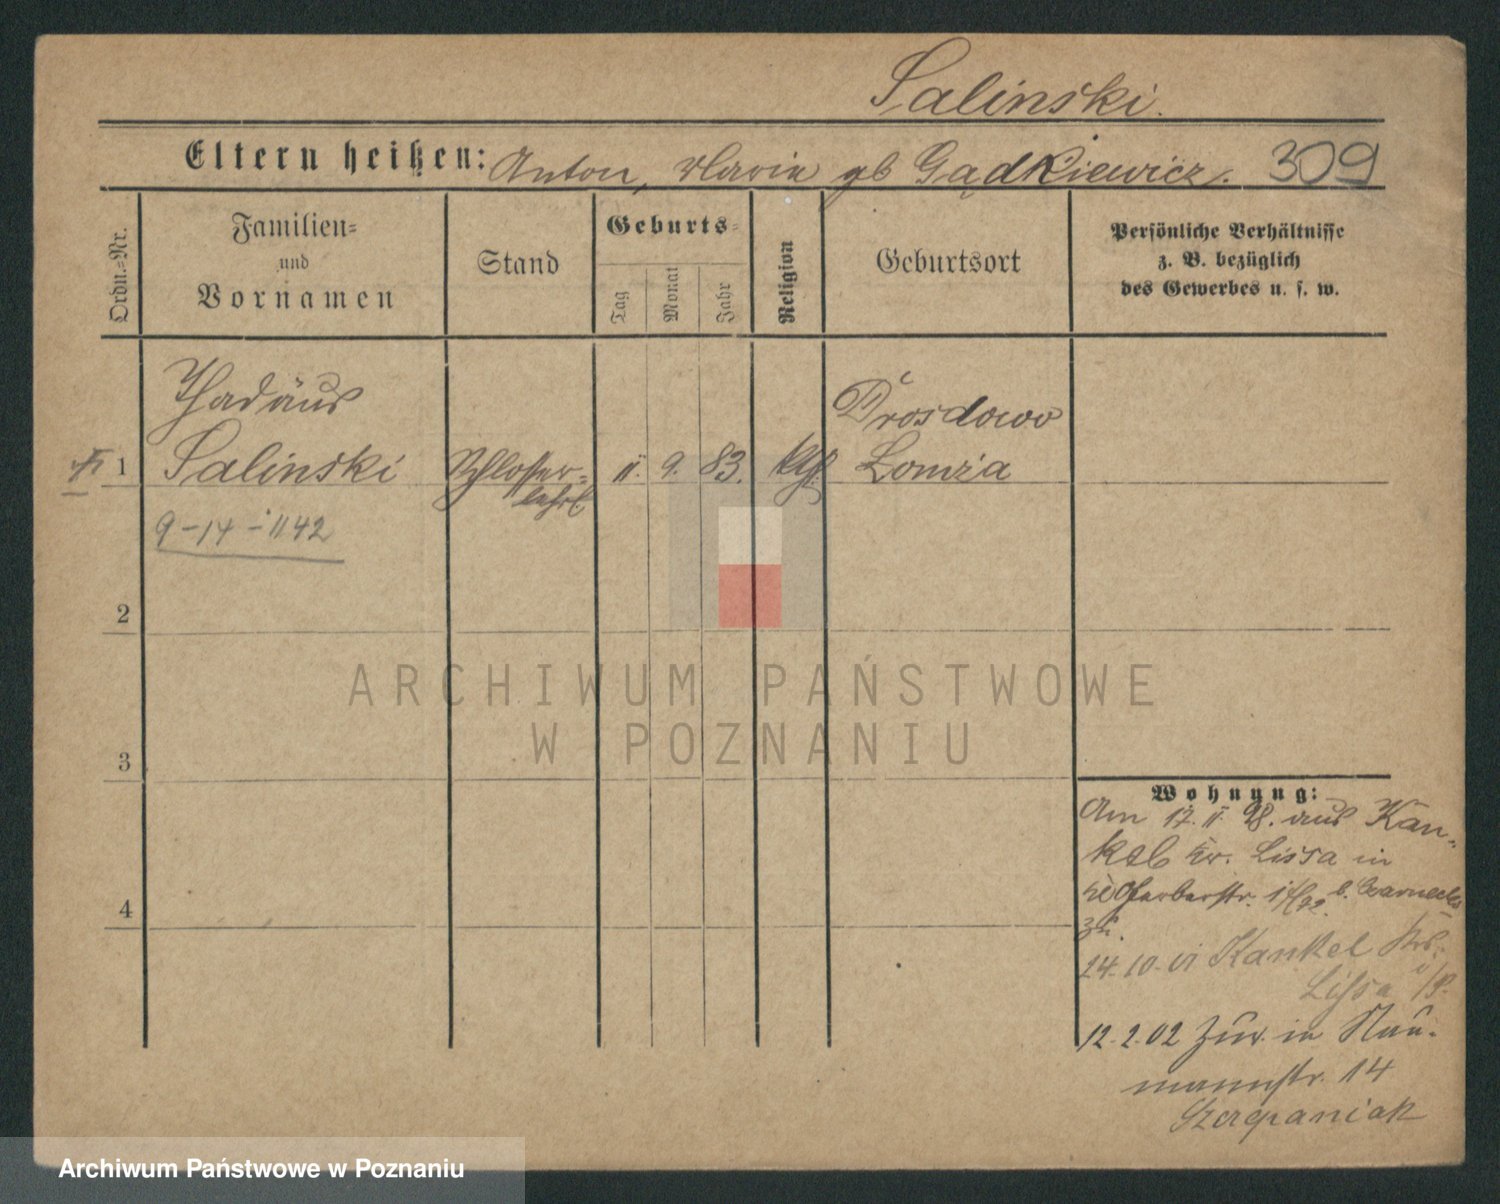 Salinski.
Eltern heißen: Anton, Maria gb Gądkiewicz. 309
Ordn.-Nr.
Familien-
und
Vornamen
Stand
Geburts-
Tag
Monat
Jahr
Religion
Geburtsort
Persönliche Verhältnisse
z. B. bezüglich
des Gewerbes u. s. w.
Thadäus
1 Salinski
Schlosser-
lehrl.
11. 9. 83.
kth.
Drosdowo
Lomża
9-14-1142
2
3
4
Wohnung:
Am 17. 11. 98. aus Kan-
kel Kr. Lissa in
Gerberstr. b. Czarnecki
zu.
24. 10. 01 Kankel Krs.
Lissa i/P.
12. 2. 02 Zur. in Nau-
mannstr. 14
Szczepaniak
ARCHIWUM PAŃSTWOWE
W POZNANIU
Archiwum Państwowe w Poznaniu